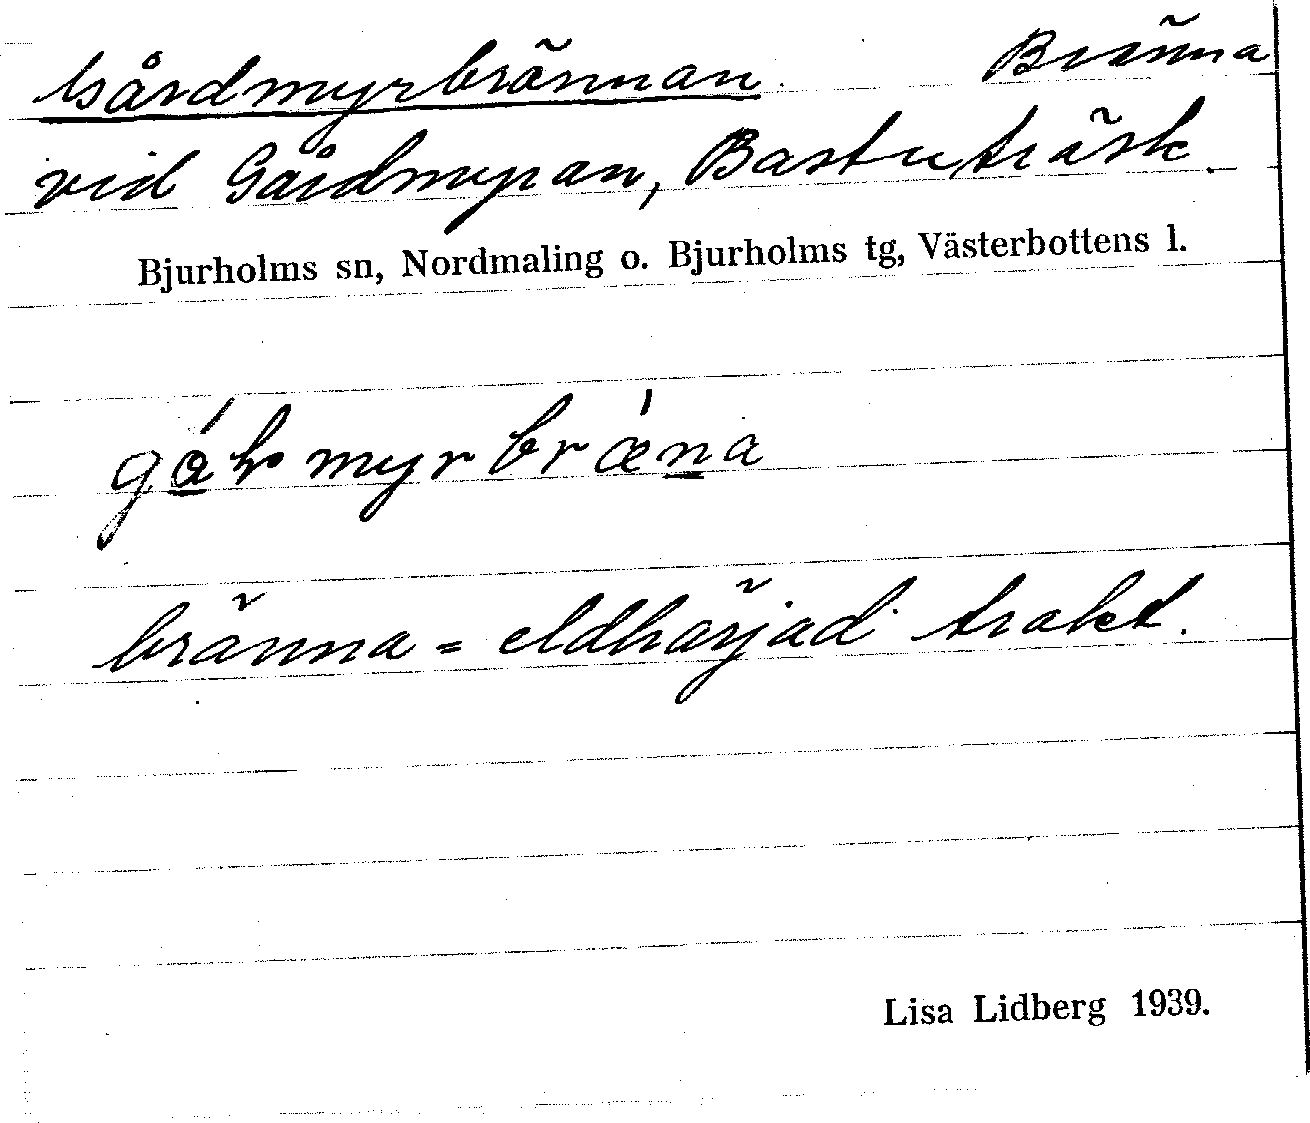 Gårdmyrbrännan. Bränna
vid Gårdmyran, Bastuträsk.
Bjurholms sn, Nordmaling o. Bjurholms tg, Västerbottens l.
bränna = eldhärjad trakt.
Lisa Lidberg 1939.